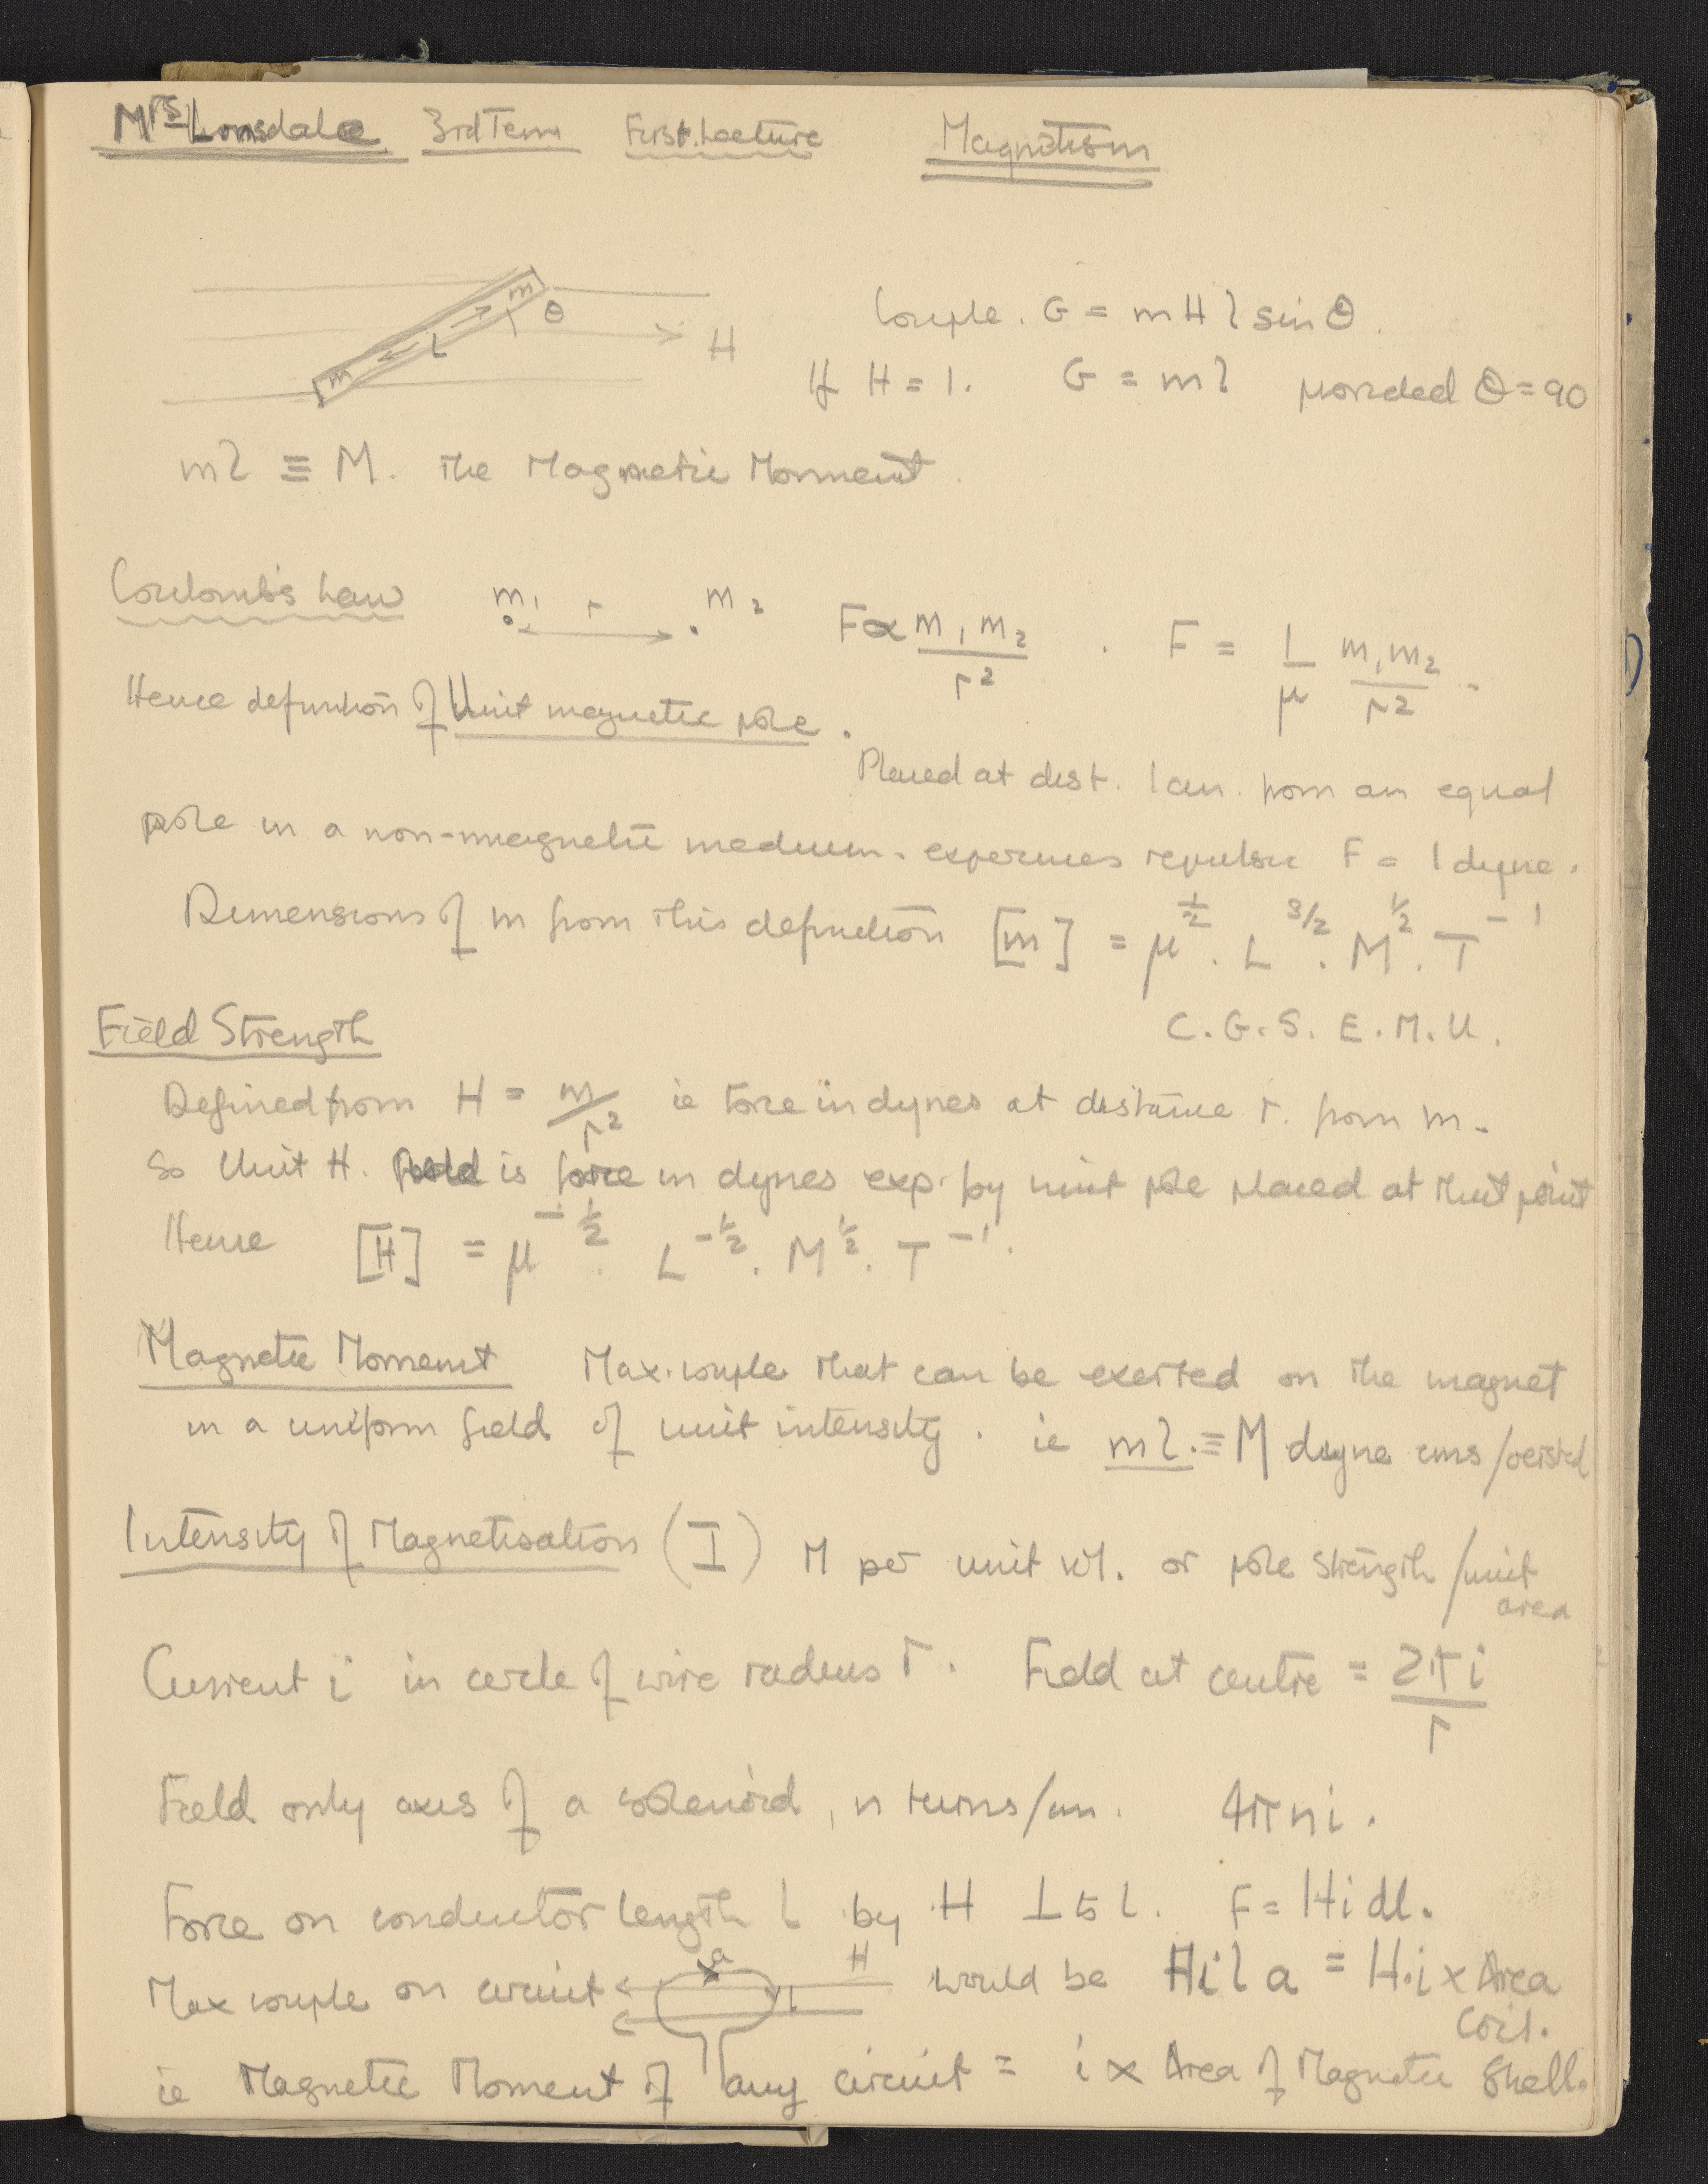 Mrs Lonsdale 3rd Term First Lecture Magnetism
m θ
l
m H
Couple. G = m H l sin θ.
If H = 1. G = m l provided θ = 90
ml ≡ M. The Magnetic Moment.
Coulomb's Law m₁ r m₂ F ∝ m₁m₂/r² . F = 1/μ m₁m₂/r² .
Hence definition of Unit magnetic pole.
Placed at dist. 1 cm. from an equal
pole in a non-magnetic medium. experiences repulsive F = 1 dyne.
Dimensions of m from this definition [m] = μ^½ . L^3/2 . M^½ . T^-1
C.G.S. E.M.U.
Field Strength
Defined from H = m/r² ie force in dynes at distance r. from m.
So Unit H. field is force in dynes exp. by unit pole placed at that point
Hence [H] = μ^-½ . L^-½ . M^½ . T^-1 .
Magnetic Moment Max. couple that can be exerted on the magnet
in a uniform field of unit intensity. ie ml. ≡ M dyne cms/oersted
Intensity of Magnetisation (I) M per unit vol. or pole strength/unit
area
Current i in circle of wire radius r. Field at centre = 2πi/r
Field only axis of a solenoid, n turns/cm. 4πni.
Force on conductor length l by H ⊥ to l. F = Hidl.
Max couple on circuit a H l would be Hila = H.i x Area
Coil.
ie Magnetic Moment of any circuit = i x Area of Magnetic Shell.